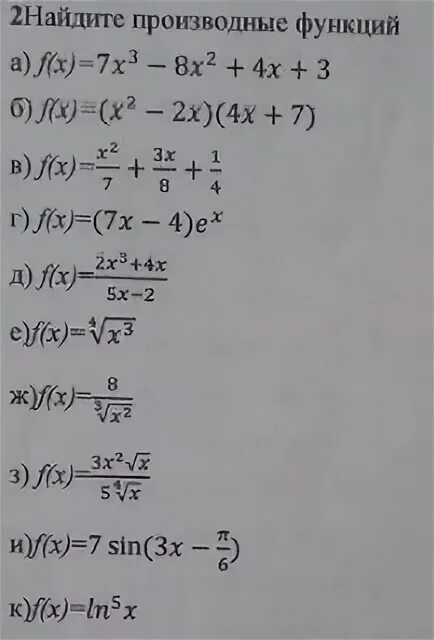 2Найдите производные функций
а) f(x)=7x³ − 8x² + 4x + 3
б) f(x)=(x² − 2x)(4x + 7)
в) f(x)=x²/7 + 3x/8 + 1/4
г) f(x)=(7x − 4)eˣ
д) f(x)=(2x³+4x)/(5x−2)
е)f(x)=∜(x³)
ж)f(x)=8/∛(x²)
з) f(x)=(3x²√x)/(5∜x)
и)f(x)=7 sin(3x − π/6)
к)f(x)=ln⁵x